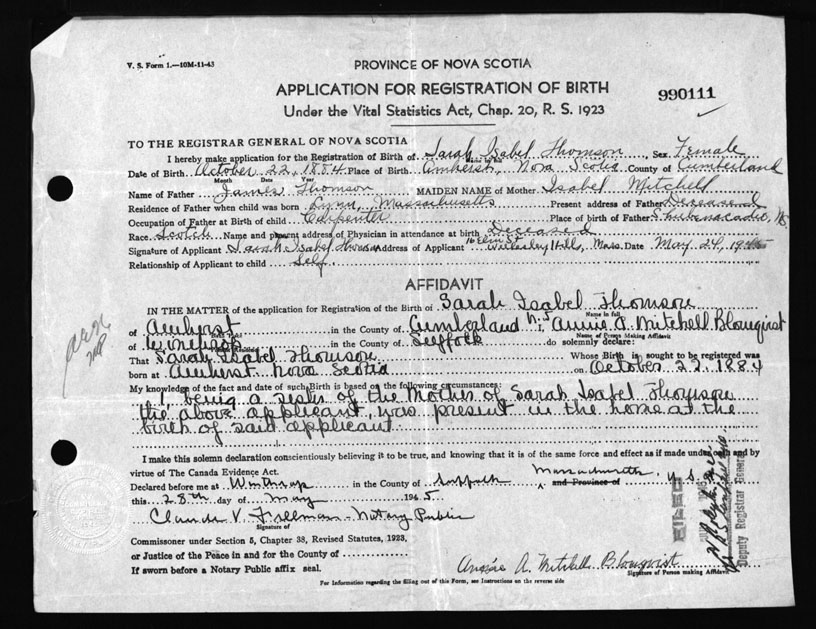 V. S. Form 1.—10M-11-43
PROVINCE OF NOVA SCOTIA
APPLICATION FOR REGISTRATION OF BIRTH
990111
Under the Vital Statistics Act, Chap. 20, R. S. 1923
TO THE REGISTRAR GENERAL OF NOVA SCOTIA
I hereby make application for the Registration of Birth of Sarah Isabel Thomson Sex Female
Date of Birth October 22, 1884 Place of Birth Amherst, Nova Scotia County of Cumberland
Month Date Year
Name of Father James Thomson MAIDEN NAME of Mother Isabel Mitchell
Residence of Father when child was born Lynn, Massachusetts Present address of Father Deceased
Occupation of Father at Birth of child Carpenter Place of birth of Father Shubenacadie, NS
Race Scotch Name and present address of Physician in attendance at birth Deceased
Signature of Applicant Sarah Isabel Address of Applicant 16 Elm St Wellesley Hills, Mass. Date May 24, 1945
Relationship of Applicant to child Self
AFFIDAVIT
IN THE MATTER of the application for Registration of the Birth of Sarah Isabel Thomson
Name in full
of Amherst in the County of Cumberland N.S. I, Annie A. Mitchell Blomquist
Name of Person Making Affidavit
of Winthrop in the County of Suffolk do solemnly declare:
That Sarah Isabel Thomson Whose Birth is sought to be registered was
born at Amherst Nova Scotia on October 22, 1884
My knowledge of the fact and date of such Birth is based on the following circumstances:
I, being a sister of the Mother of Sarah Isabel Thomson
the above applicant, was present in the home at the
birth of said applicant.
I make this solemn declaration conscientiously believing it to be true, and knowing that it is of the same force and effect as if made under oath and by
virtue of The Canada Evidence Act.
Declared before me at Winthrop in the County of Suffolk and Province of Massachusetts, U.S.
this 28th day of May 1945
V. Freeman - Notary Public
Signature of
Commissioner under Section 5, Chapter 38, Revised Statutes, 1923,
or Justice of the Peace in and for the County of
If sworn before a Notary Public affix seal.
Annie A. Mitchell Blomquist
Signature of Person making Affidavit
For Information regarding the filling out of this Form, see Instructions on the reverse side
FILED
Deputy Registrar General